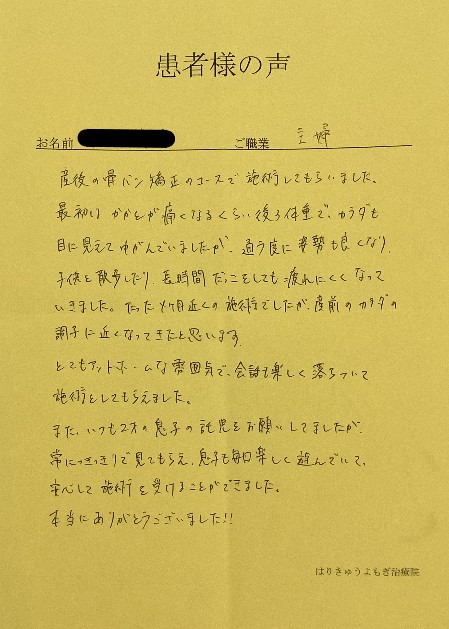 患者様の声
お名前 ご職業 主婦
産後の骨バン矯正のコースで施術してもらいました。
最初は かかとが痛くなるくらい後ろ体重で、カラダも
目に見えてゆがんでいましたが、通う度に姿勢も良くなり、
子供と散歩したり、長時間だっこをしても疲れにくくなって
いきました。たった4ヶ月近くの施術でしたが、産前のカラダの
調子に近くなってきたと思います。
とてもアットホームな雰囲気で、会話も楽しく落ちついて
施術をしてもらえました。
また、いつも2才の息子の託児をお願いしてましたが、
常につきっきりで見てもらえ、息子も毎日楽しく遊んでいて、
安心して施術を受けることができました。
本当にありがとうございました!!
はりきゅうよもぎ治療院